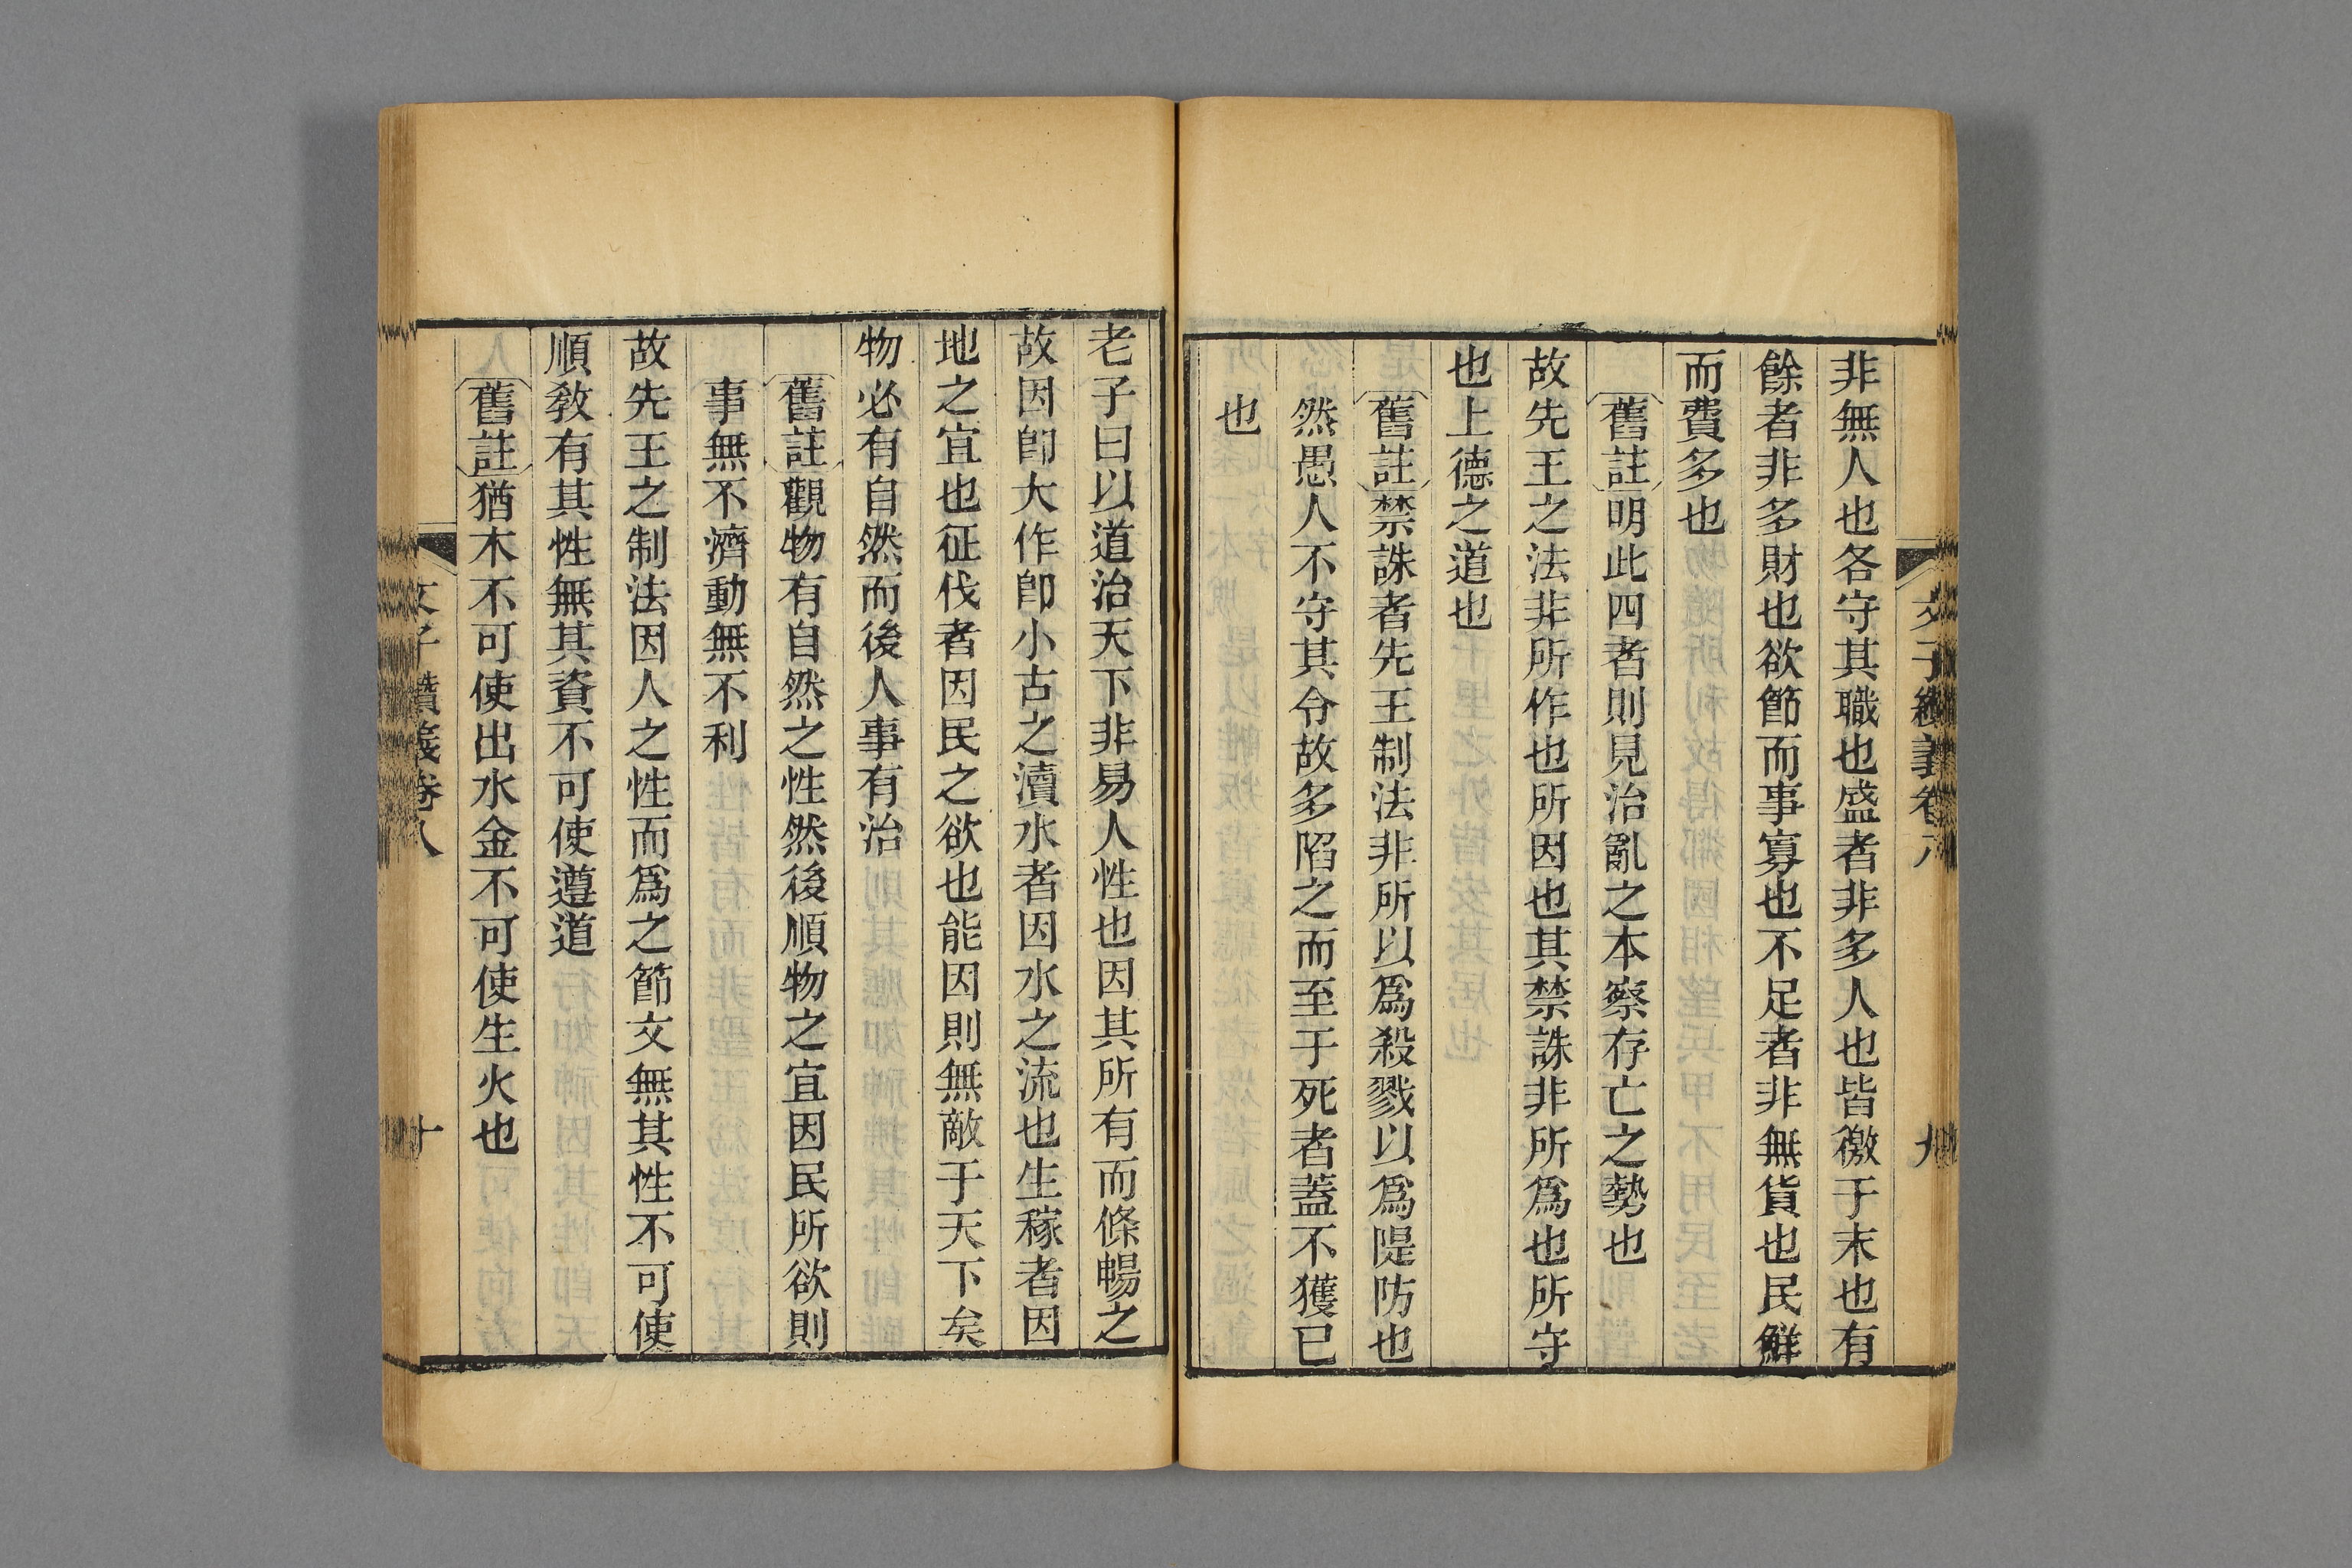 文子纘義卷八 九
非無人也各守其職也盛者非多人也皆徼于末也有
餘者非多財也欲節而事寡也不足者非無貨也民鮮
而費多也
舊註明此四者則見治亂之本察存亡之勢也
故先王之法非所作也所因也其禁誅非所爲也所守
也上德之道也
舊註禁誅者先王制法非所以爲殺戮以爲隄防也
然愚人不守其令故多陷之而至于死者蓋不獲已
也
老子曰以道治天下非易人性也因其所有而條暢之
故因卽大作卽小古之瀆水者因水之流也生稼者因
地之宜也征伐者因民之欲也能因則無敵于天下矣
物必有自然而後人事有治
舊註觀物有自然之性然後順物之宜因民所欲則
事無不濟動無不利
故先王之制法因人之性而爲之節文無其性不可使
順敎有其性無其資不可使遵道
舊註猶木不可使出水金不可使生火也
文子纘義卷八 十